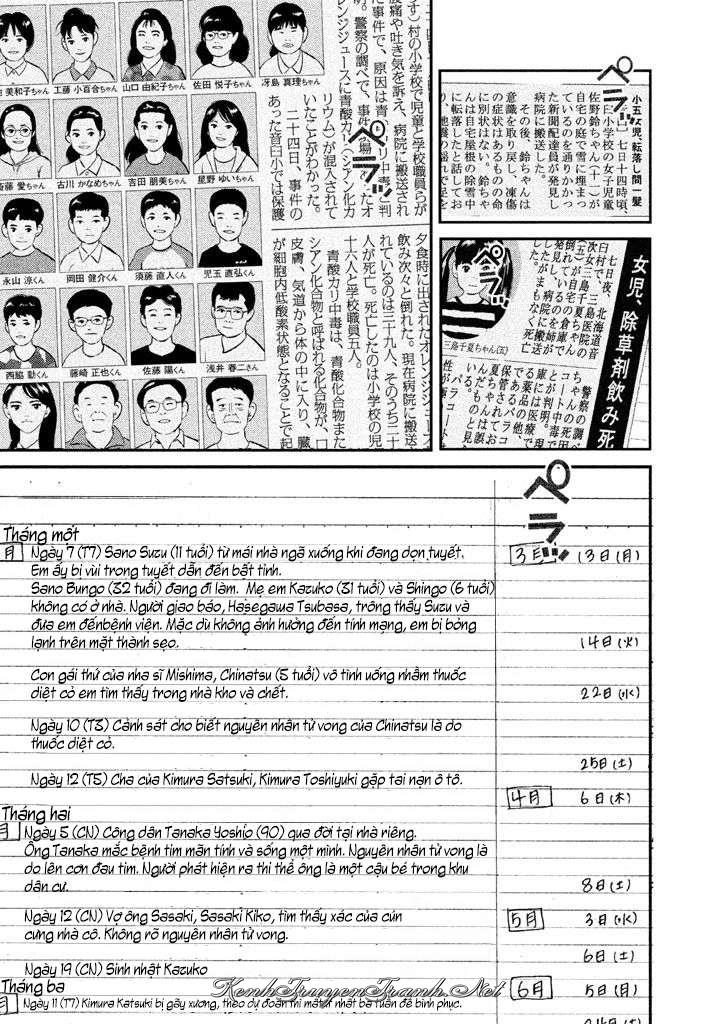 美和子ちゃん
工藤 小百合ちゃん
山口 由紀子ちゃん
佐田 悦子ちゃん
冴島 真理ちゃん
愛ちゃん
古川 かなめちゃん
吉田 朋美ちゃん
星野 ゆいちゃん
永山 涼くん
岡田 健介くん
須藤 直人くん
児玉 直弘くん
西脇 勤くん
藤崎 正也くん
佐藤 陽くん
浅井 春二さん
す）村の小学校で児童と学校職員らが
腹痛や吐き気を訴え、病院に搬送され
リウム）が混入されて
いたことがわかった。
二十四日、事件の
あった音臼小では保護
夕食時に出されたオレンジジュース
飲み次々と倒れた。現在病院に搬送さ
れているのは三十九人、そのうち二十
人が死亡。死亡したのは小学校の児
十六人と学校職員五人。
青酸カリ中毒は、青酸化合物また
シアン化合物と呼ばれる化合物が、口
皮膚、気道から体の中に入り、臓
が細胞内低酸素状態となることで起
ペラッ
小五女児、転落し間一髪
七日十四時頃、
臼小学校の女子児童
佐野鈴ちゃん（十一）が
自宅の庭で雪に埋まっ
ているのを通りかかっ
た新聞配達員が発見し
病院に搬送した。
その後、鈴ちゃんは
意識を取り戻し、凍傷
の症状はあるものの命
に別状はない。鈴ちゃ
んは自宅屋根の除雪中
に転落したと話してお
ペラッ
女児、除草剤飲み死
七日夜、北海道音
臼村で、三島医院の
次女三島千夏ちゃん
（五）が自宅の倉庫で
倒れているのを姉が
発見し、病院に搬送
したがまもなく死亡
三島千夏ちゃん（五）
ペラッ
ペラッ
Tháng một
月
Ngày 7 (T7) Sano Suzu (11 tuổi) từ mái nhà ngã xuống khi đang dọn tuyết.
Em ấy bị vùi trong tuyết dẫn đến bất tỉnh.
Sano Bungo (32 tuổi) đang đi làm. Mẹ em Kazuko (31 tuổi) và Shingo (6 tuổi)
không có ở nhà. Người giao báo, Hasegawa Tsubasa, trông thấy Suzu và
đưa em đếnbệnh viện. Mặc dù không ảnh hưởng đến tính mạng, em bị bỏng
lạnh trên mặt thành sẹo.
Con gái thứ của nha sĩ Mishima, Chinatsu (5 tuổi) vô tình uống nhầm thuốc
diệt cỏ em tìm thấy trong nhà kho và chết.
Ngày 10 (T3) Cảnh sát cho biết nguyên nhân tử vong của Chinatsu là do
thuốc diệt cỏ.
Ngày 12 (T5) Cha của Kimura Satsuki, Kimura Toshiyuki gặp tai nạn ô tô.
Tháng hai
月
Ngày 5 (CN) Công dân Tanaka Yoshio (90) qua đời tại nhà riêng.
Ông Tanaka mắc bệnh tim mãn tính và sống một mình. Nguyên nhân tử vong là
do lên cơn đau tim. Người phát hiện ra thi thể ông là một cậu bé trong khu
dân cư.
Ngày 12 (CN) Vợ ông Sasaki, Sasaki Kiko, tìm thấy xác của cún
cưng nhà cô. Không rõ nguyên nhân tử vong.
Ngày 19 (CN) Sinh nhật Kazuko
Tháng ba
月
Ngày 11 (T7) Kimura Katsuki bị gãy xương, theo dự đoán thì mất ít nhất ba tuần để bình phục.
3月 13日(月)
14日(火)
22日(水)
25日(土)
4月 6日(木)
8日(土)
5月 3日(水)
6日(土)
6月 5日(月)
24日(土)
KenhTruyenTranh.Net